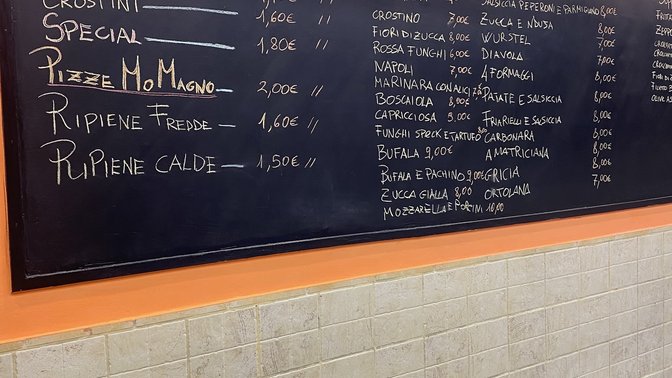 CROSTINI
SPECIAL — 1,60€ "
1,80€ "
PIZZE MO MAGNO — 2,00€ "
RIPIENE FREDDE — 1,60€ "
RIPIENE CALDE — 1,50€ "
CROSTINO 7,00€
FIORI DI ZUCCA 8,00€
ROSSA FUNGHI 6,00€
NAPOLI 7,00€
MARINARA CON ALICI
BOSCAIOLA 8,00€
CAPRICCIOSA 9,00€
FUNGHI SPECK E TARTUFO
BUFALA 9,00€
BUFALA E PACHINO 9,00€
ZUCCA GIALLA 8,00
MOZZARELLA E PORCINI 10,00
SALSICCIA PEPERONI E PARMIGIANO 8,00€
ZUCCA E NDUJA 8,00€
WURSTEL 7,00€
DIAVOLA 7,00€
4 FORMAGGI 8,00€
PATATE E SALSICCIA 8,00€
FRIARIELLI E SALSICCIA 8,00€
CARBONARA 8,00€
AMATRICIANA 8,00€
GRICIA 8,00€
ORTOLANA 7,00€